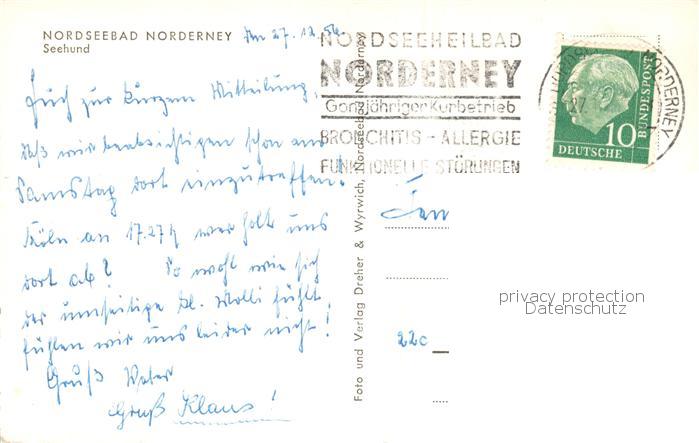 NORDSEEBAD NORDERNEY
Seehund
Am 27.12.56.
Euch zur kurzem Mitteilung,
daß wir beabsichtigen schon am
Samstag dort einzutreffen!
Köln an 17.27h wer holt uns
dort ab? So wohl wie sich
der umseitige kl. Wolli fühlt,
fühlen wir uns leider nicht!
Gruß Vater
Gruß Klaus!
Foto und Verlag Dreher & Wyrwich, Nordseebad Norderney
NORDSEEHEILBAD
NORDERNEY
Ganzjähriger Kurbetrieb
BRONCHITIS - ALLERGIE
FUNKTIONELLE STÖRUNGEN
NORDERNEY
27
10
DEUTSCHE
BUNDESPOST
22c
privacy protection
Datenschutz